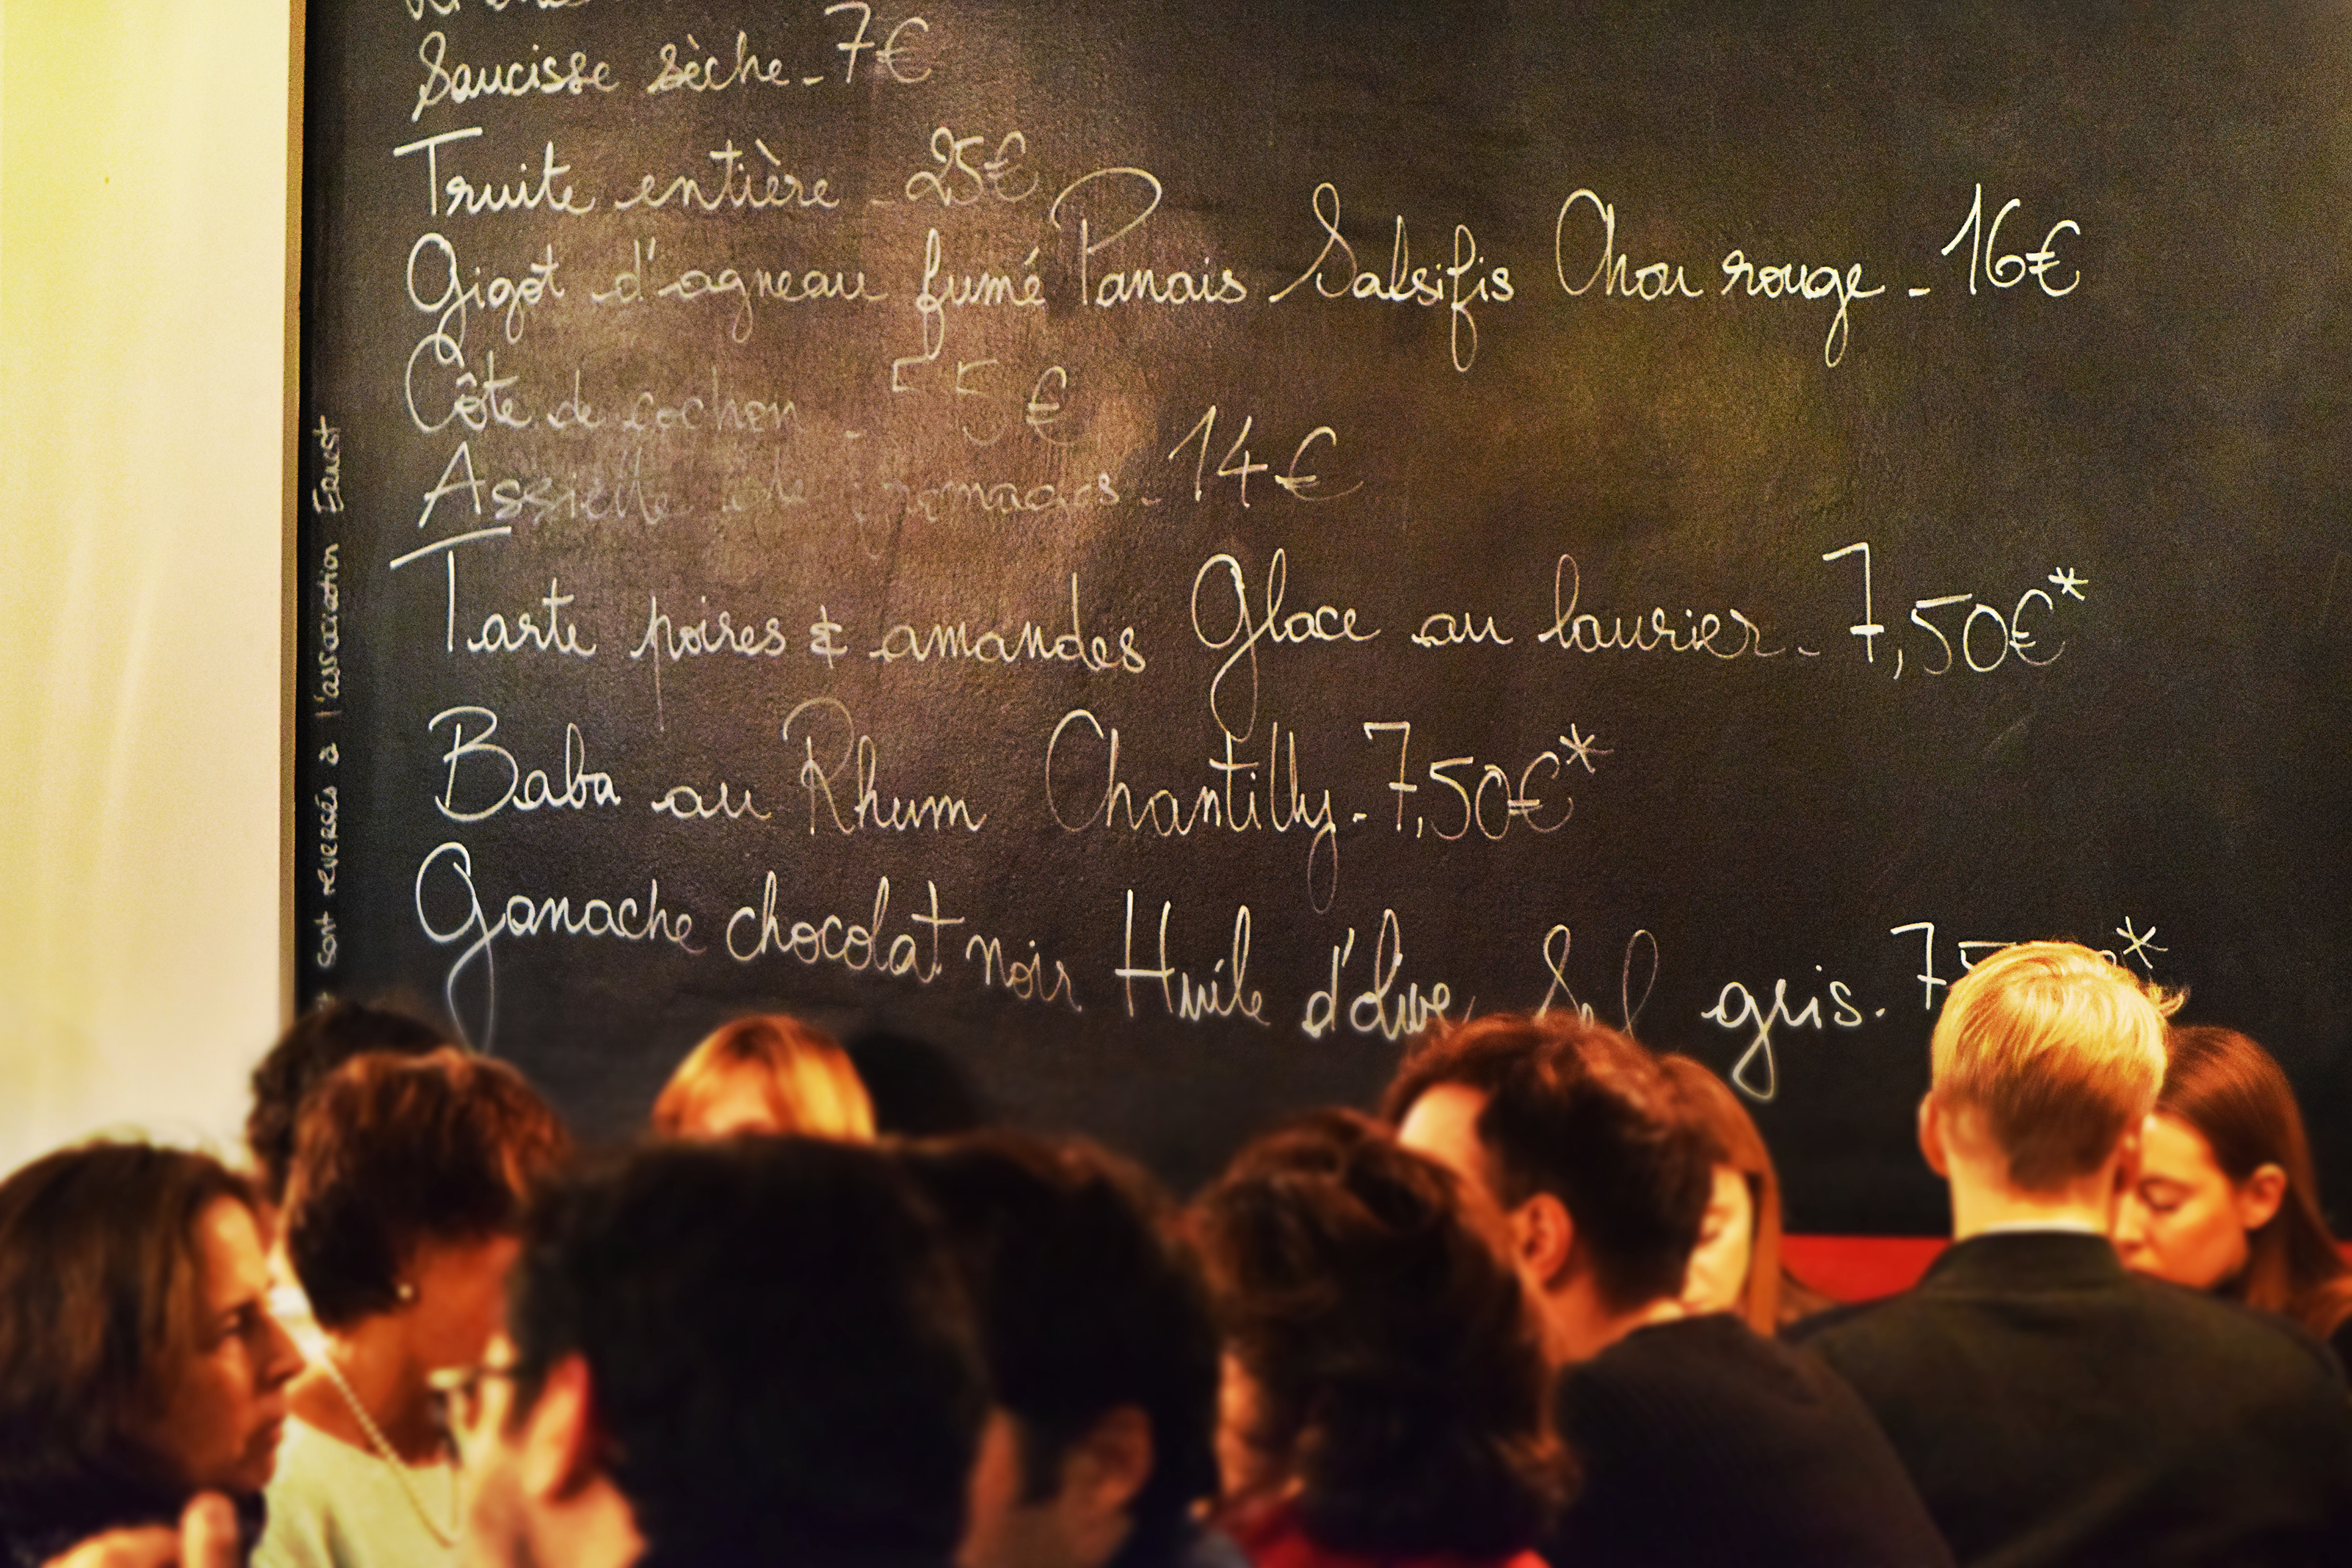 Saucisse sèche - 7€
Truite entière - 25€
Gigot d'agneau fumé Panais Salsifis Chou rouge - 16€
Côte de cochon - 55€
Assiette de fromages - 14€
Tarte poires & amandes Glace au laurier - 7,50€*
Baba au Rhum Chantilly - 7,50€*
Ganache chocolat noir Huile d'olive Sel gris - 7
sont reversés à l'association Ernest